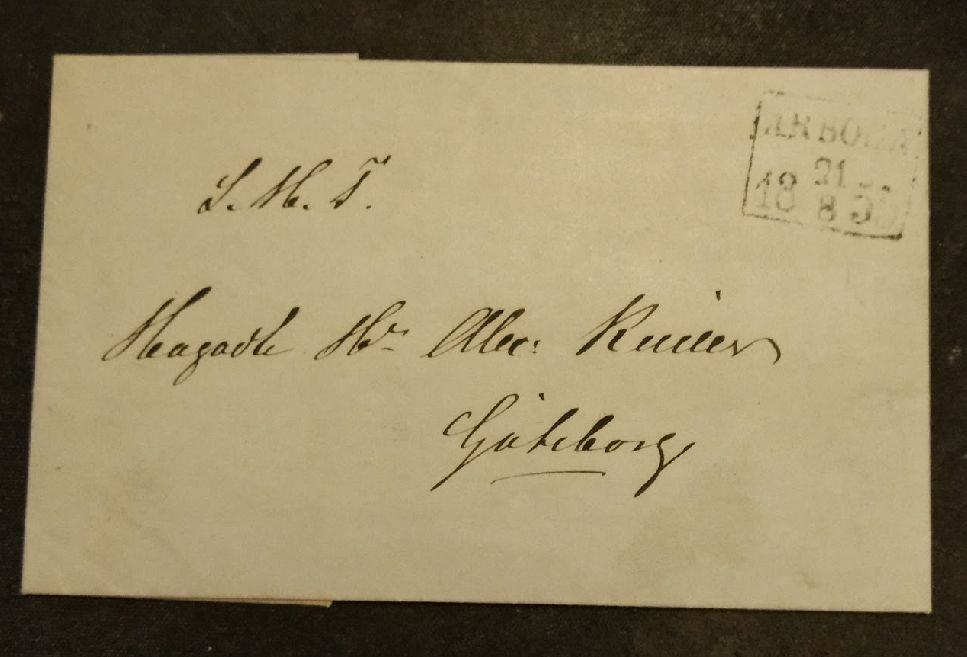 ARBOGA
21
18 8 5
S. H. T.
Högädle Hr Alex: Keiller
Göteborg